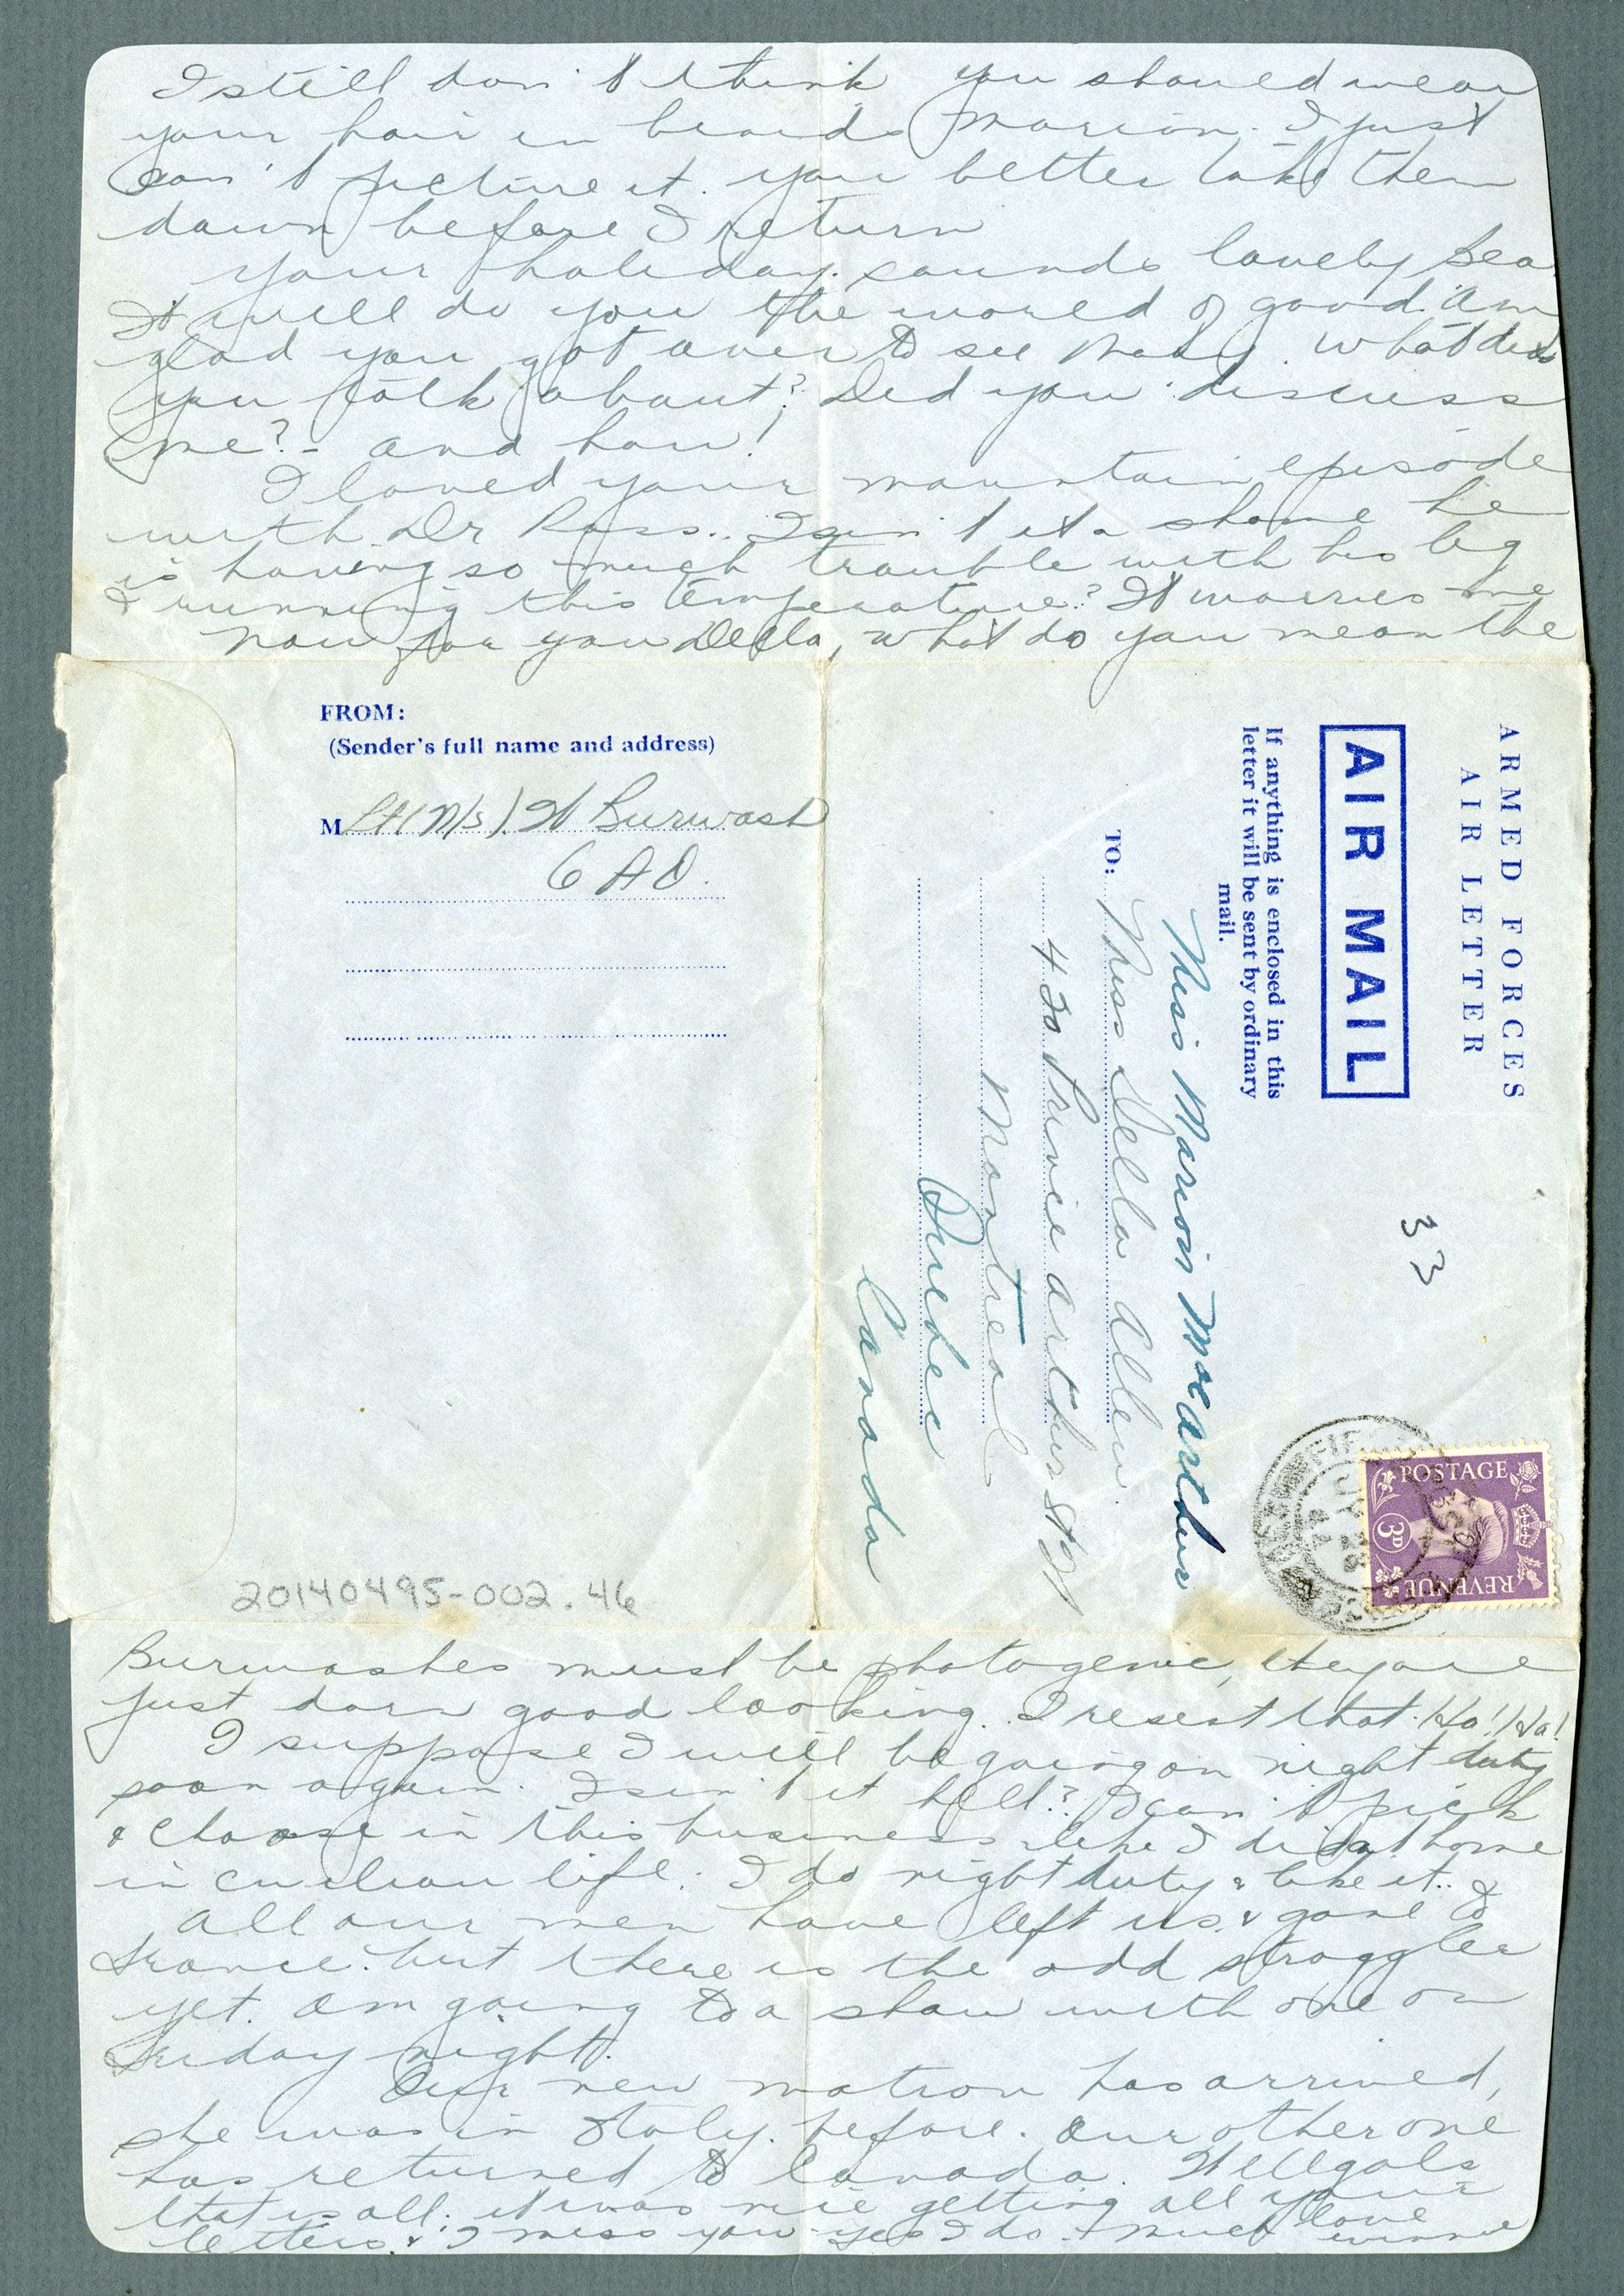 I still don't think you should wear
your hair in braids Marion. I just
can't picture it. you better take them
down before I return
your holiday sounds lovely Bea
It will do you the world of good. Am
glad you got over to see Mady. What did
you talk about? Did you discuss
me? - and how!
I loved your mountain episode
with Dr Ross.. Isn't it a shame he
is having so much trouble with his leg
& running this temperature? It worries me
Now for you Della, what do you mean the
FROM:
(Sender's full name and address)
M Lt (N/S) W Burwash
6 AD.
ARMED FORCES
AIR LETTER
AIR MAIL
If anything is enclosed in this
letter it will be sent by ordinary
mail.
33
TO:
Miss Marion McArthur
Miss Della Allen.
420 Prince Arthur St W
Montreal
Quebec
Canada
POSTAGE
3D
REVENUE
20140495-002.46
Burwashes must be photogenic, they are
just darn good looking. I resent that. Ha! Ha!
I suppose I will be going on night duty
soon again. Isn't it hell? I can't pick
& choose in this business like I did at home
in civilian life. I do night duty & like it..
All our men have left us & gone to
France. but there is the odd straggler
yet. Am going to a show with one on
Friday night.
Our new matron has arrived,
she was in Italy. before. Our other one
has returned to Canada. Well gals
that is all. it was nice getting all your
letters. & I miss you - yes I do. - Much love
Winnie